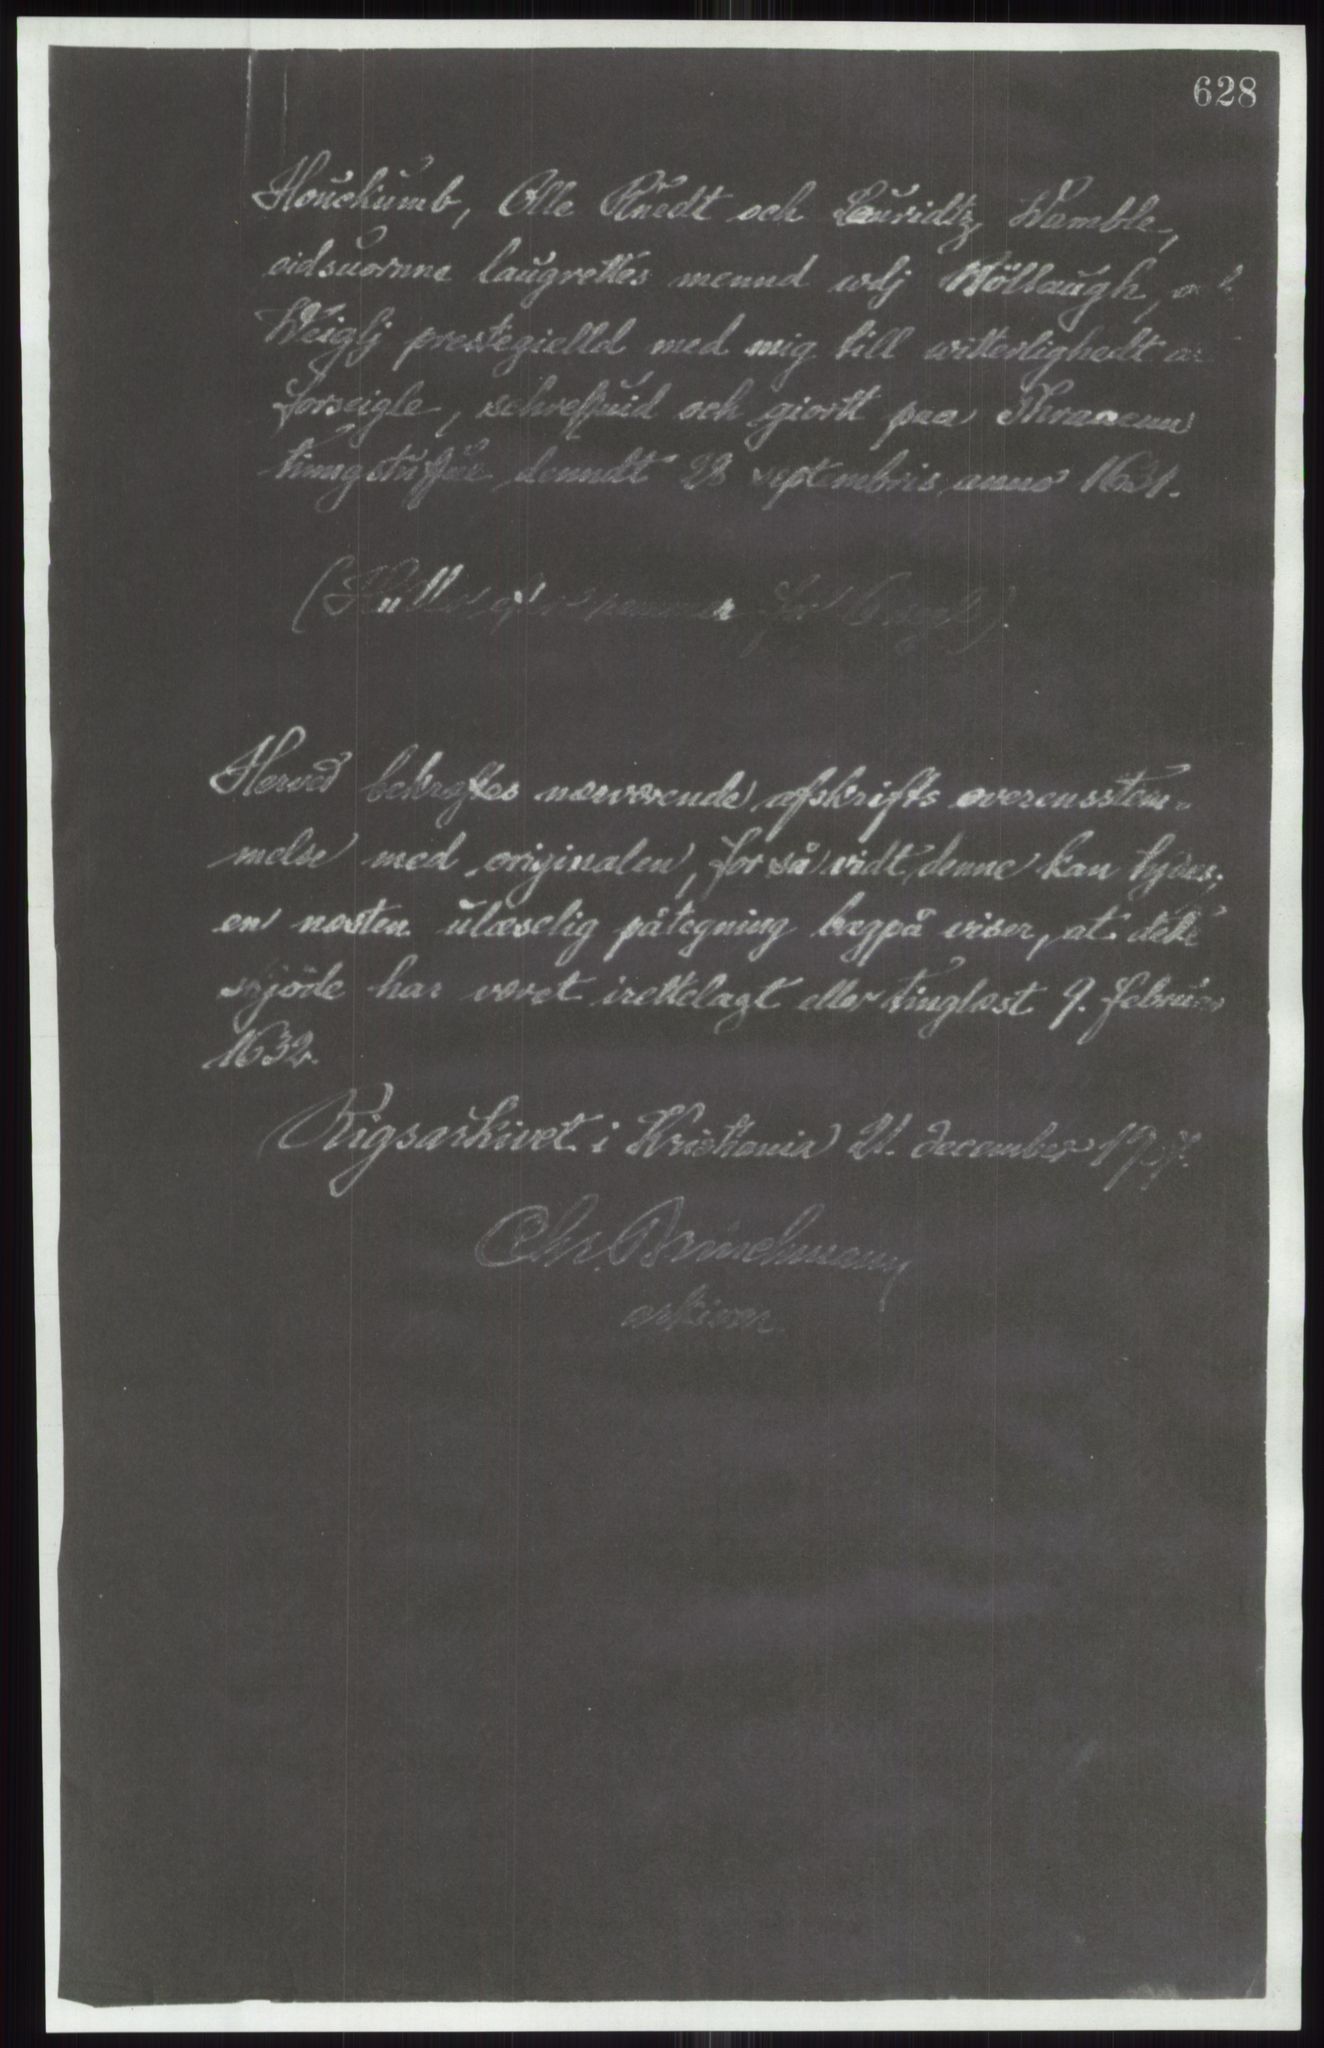 628
Houckumb, Olle Ruedt och Lauridtz Wamble,
eidsuornne laugrettes mennd wdj Wöllaugh,
Weiglj prestegielld med mig till witterlighedt
forseigle, schreffuid och giortt paa Thranenn
tinngstuffue denndt 28 septembris anno 1631.
(Huller efter remmer for
Herved bekræftes nærværende afskrifts overensstem-
melse med originalen, for så vidt denne kan tydes;
en næsten ulæselig påtegning bagpå viser, at dette
skjöde har været irettelagt eller tinglæst 9. februar
1632.
Rigsarkivet i Kristiania 21. december
Chr. Brinchmann
arkivar